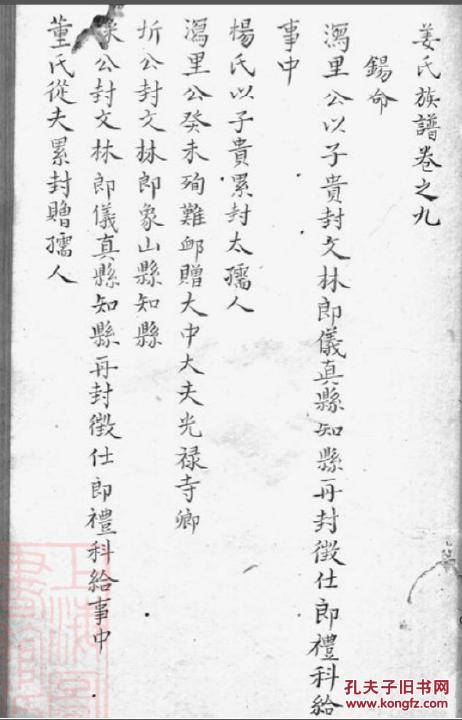 姜氏族譜卷之九
錫命
瀉里公以子貴封文林郎儀真縣知縣再封徵仕郎禮科給
事中
楊氏以子貴累封太孺人
瀉里公癸未殉難䘏贈大中大夫光禄寺卿
圻公封文林郎象山縣知縣
埰公封文林郎儀真縣知縣再封徵仕郎禮科給事中
董氏從夫累封贈孺人
上海圖
書館
孔夫子旧书网
www.kongfz.com